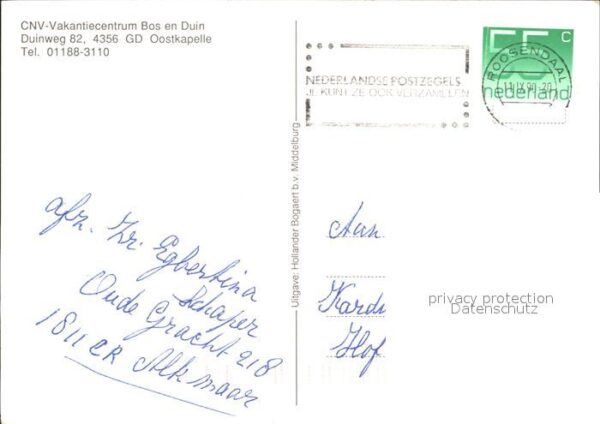 CNV-Vakantiecentrum Bos en Duin
Duinweg 82, 4356 GD Oostkapelle
Tel. 01188-3110
55 c
nederland
ROOSENDAAL
11.IX.90.-20
NEDERLANDSE POSTZEGELS
JE KUNT ZE OOK VERZAMELEN
Uitgave: Hollander Bogaert b.v. Middelburg
afz. Zr. Egbertina
Schaper
Oude Gracht 218
1811 CR Alkmaar
Aan
Kardi
Hof
privacy protection
Datenschutz